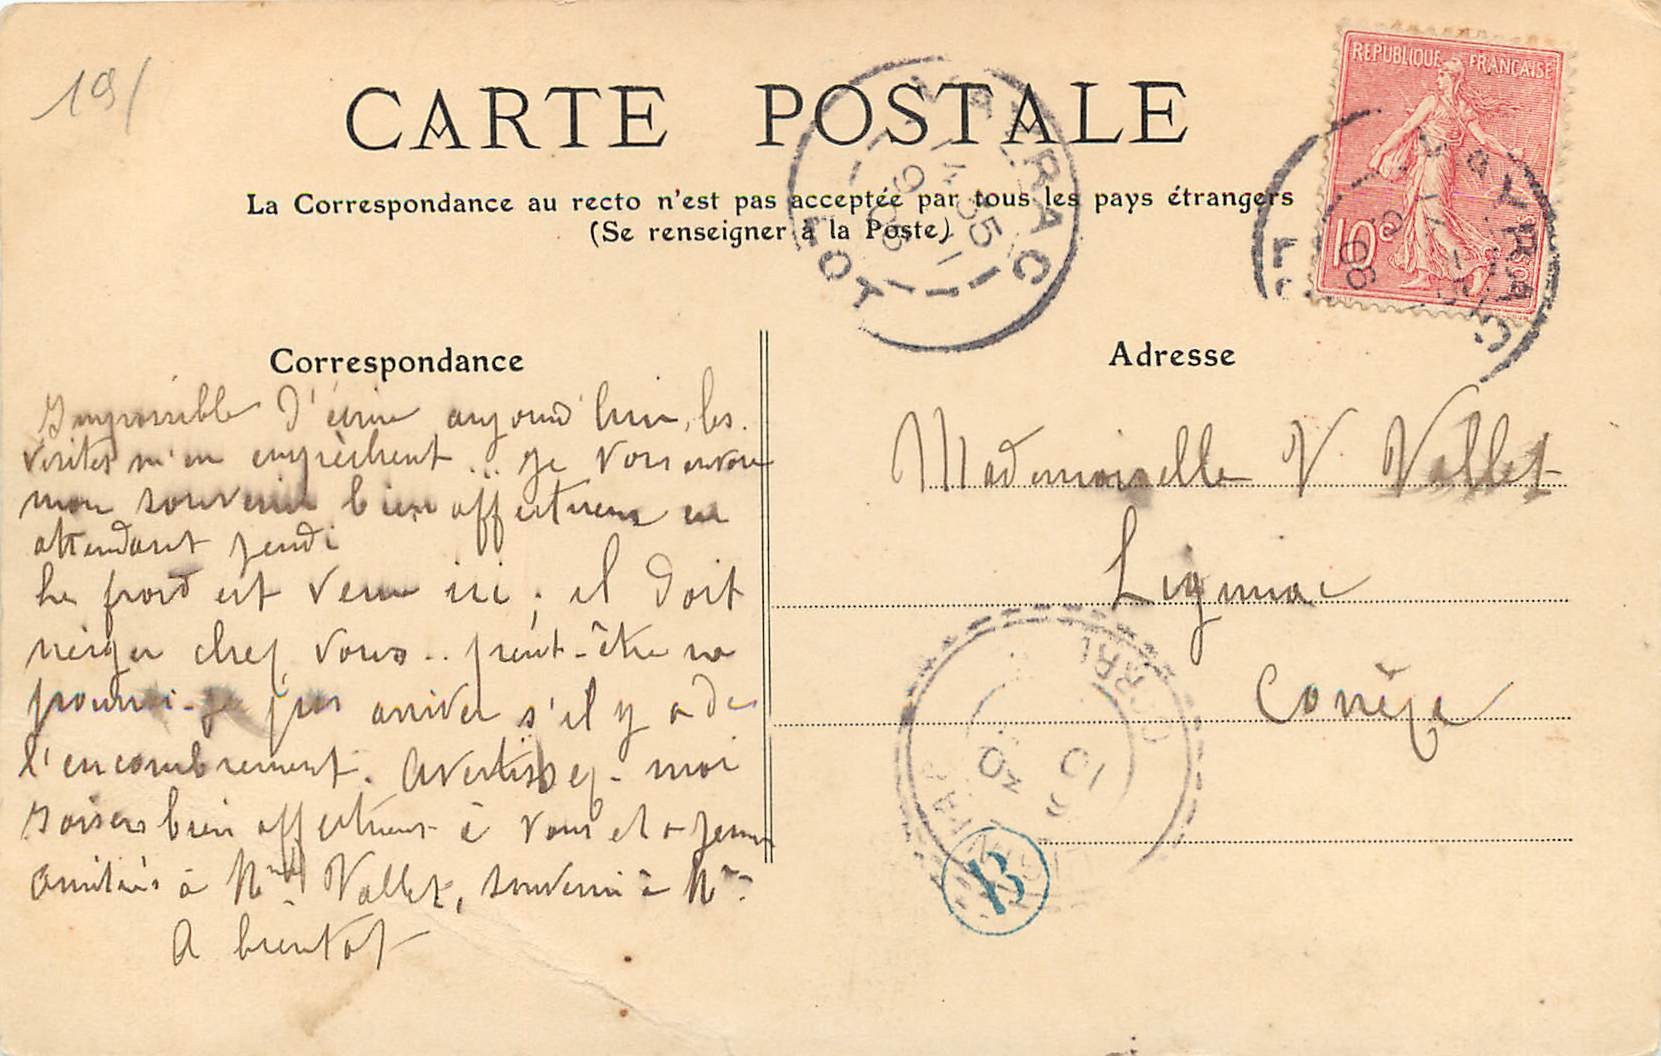 19/
CARTE POSTALE
La Correspondance au recto n'est pas acceptée par tous les pays étrangers
(Se renseigner à la Poste)
REPUBLIQUE FRANÇAISE
10c
LOT
Correspondance
Adresse
Impossible d'écrire aujourd'hui, les
visites m'en empêchent... Je vous envoie
mon souvenir bien affectueux en
attendant jeudi
Le froid est venu ici ; il doit
neiger chez vous.. peut-être ne
pourrai-je pas arriver s'il y a de
l'encombrement. Avertissez-moi
Baisers bien affectueux à vous et a
amitiés à Mme Vallet, souvenir à Mr
A bientot
Mademoiselle V Vallet
Liginiac
Corrèze
B